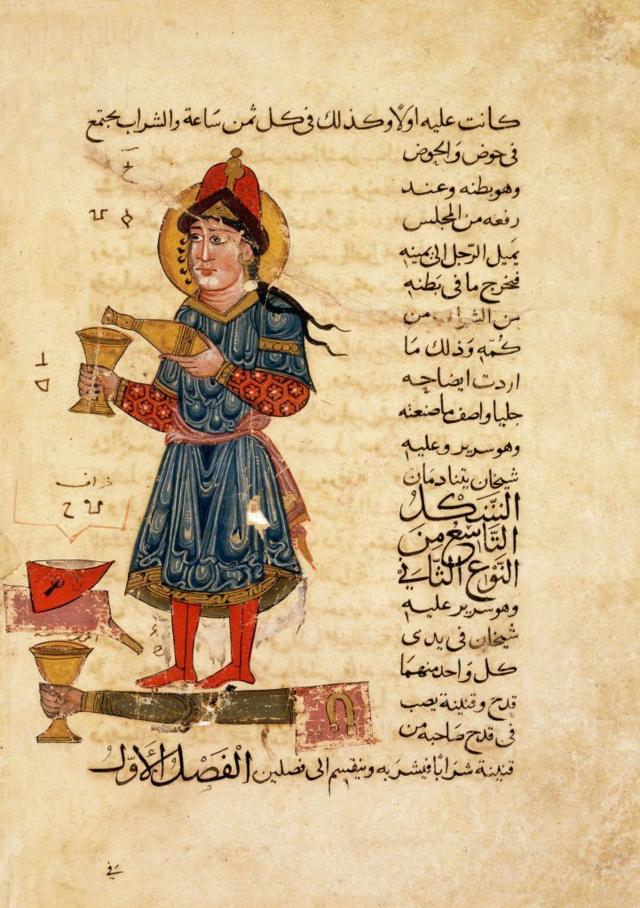 كانت عليه اولًا وكذلك في كل ثمن ساعة والشراب يجتمع
في حوض والحوض
وهو بطنه وعند
رفعه من المجلس
يميل الرجل الى يمينه
فيخرج ما في بطنه
من الشراب من
كمّه وذلك ما
اردت ايضاحه
جليا واصف ما صنعته
وهو سرير وعليه
شيخان يتنادمان
الشكل
التاسع من
النوع الثاني
وهو سرير عليه
شيخان في يدى
كل واحد منهما
قدح وقنينة يصب
في قدح صاحبه من
قنينة شرابًا فيشربه وينقسم الى فصلين الفصل الاول
في